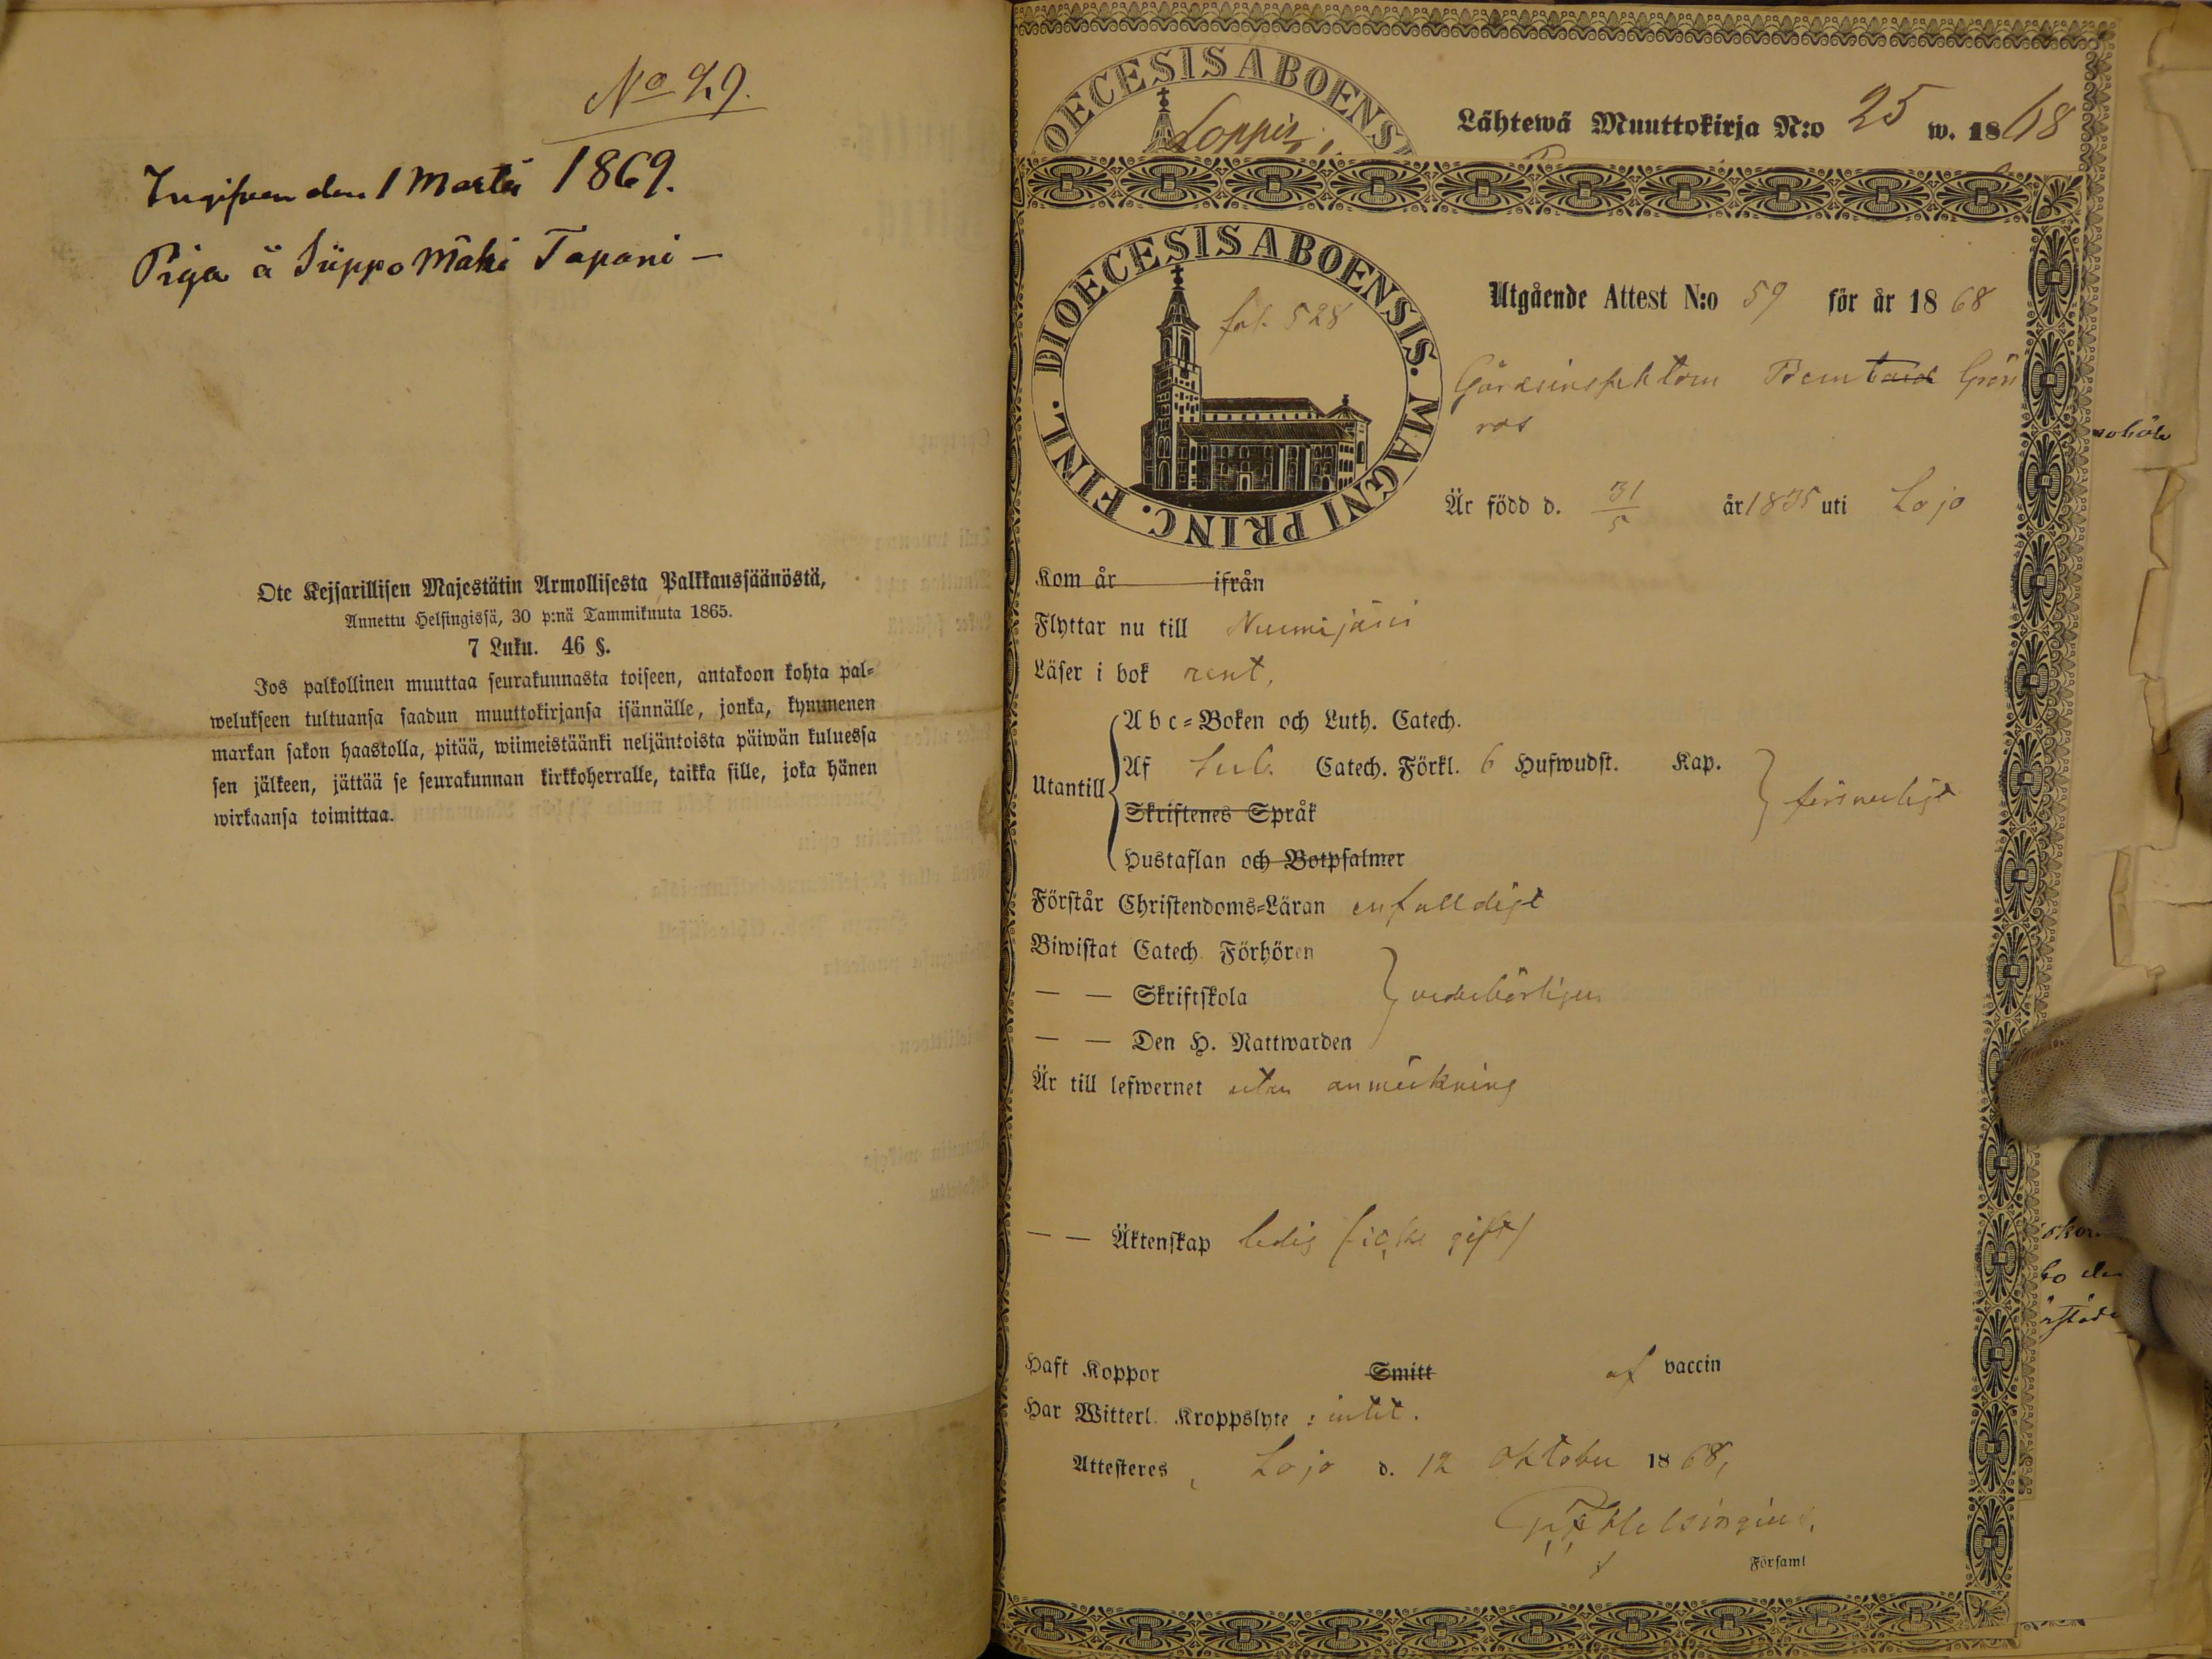 No 29.
Ingifven den 1 Martii 1869.
Piga å Siippo Mäki Tapani –
Ote Kejsarillisen Majestätin Armollisesta Palkkaussäänöstä,
Annettu Helsingissä, 30 p:nä Tammikuuta 1865.
7 Luku. 46 §.
Jos palkollinen muuttaa seurakunnasta toiseen, antakoon kohta pal-
welukseen tultuansa saadun muuttokirjansa isännälle, jonka, kymmenen
markan sakon haastolla, pitää, wiimeistäänki neljäntoista päiwän kuluessa
sen jälkeen, jättää se seurakunnan kirkkoherralle, taikka sille, joka hänen
wirkaansa toimittaa.
DIOECESIS ABOENSIS
Loppis
Lähtewä Muuttokirja N:o 25 w. 1868
DIOECESIS ABOENSIS. MAGNI PRINC. FINL.
fol. 528
Utgående Attest N:o 59 för år 1868
Gårdsinspektorn Berntard Grön
ros
Är född d. 31/5 år 1835 uti Lojo
Kom år ifrån
Flyttar nu till Nurmijärvi
Läser i bok rent,
Utantill
Abc-Boken och Luth. Catech.
Af Luth. Catech. Förkl. 6 Hufwudst. Kap.
Skriftenes Språk
försvarligt
Hustaflan och Botpsalmer
Förstår Christendoms-Läran enfalldigt
Biwistat Catech. Förhören
— — Skriftskola
vederbörligen
— — Den H. Nattwarden
Är till lefwernet utan anmärkning
— — Äktenskap ledig (icke gift)
Haft Koppor Smitt af vaccin
Har Witterl. Kroppslyte : intet.
Attesteres, Lojo d. 12 Oktober 1868,
Helsingius.
Församl